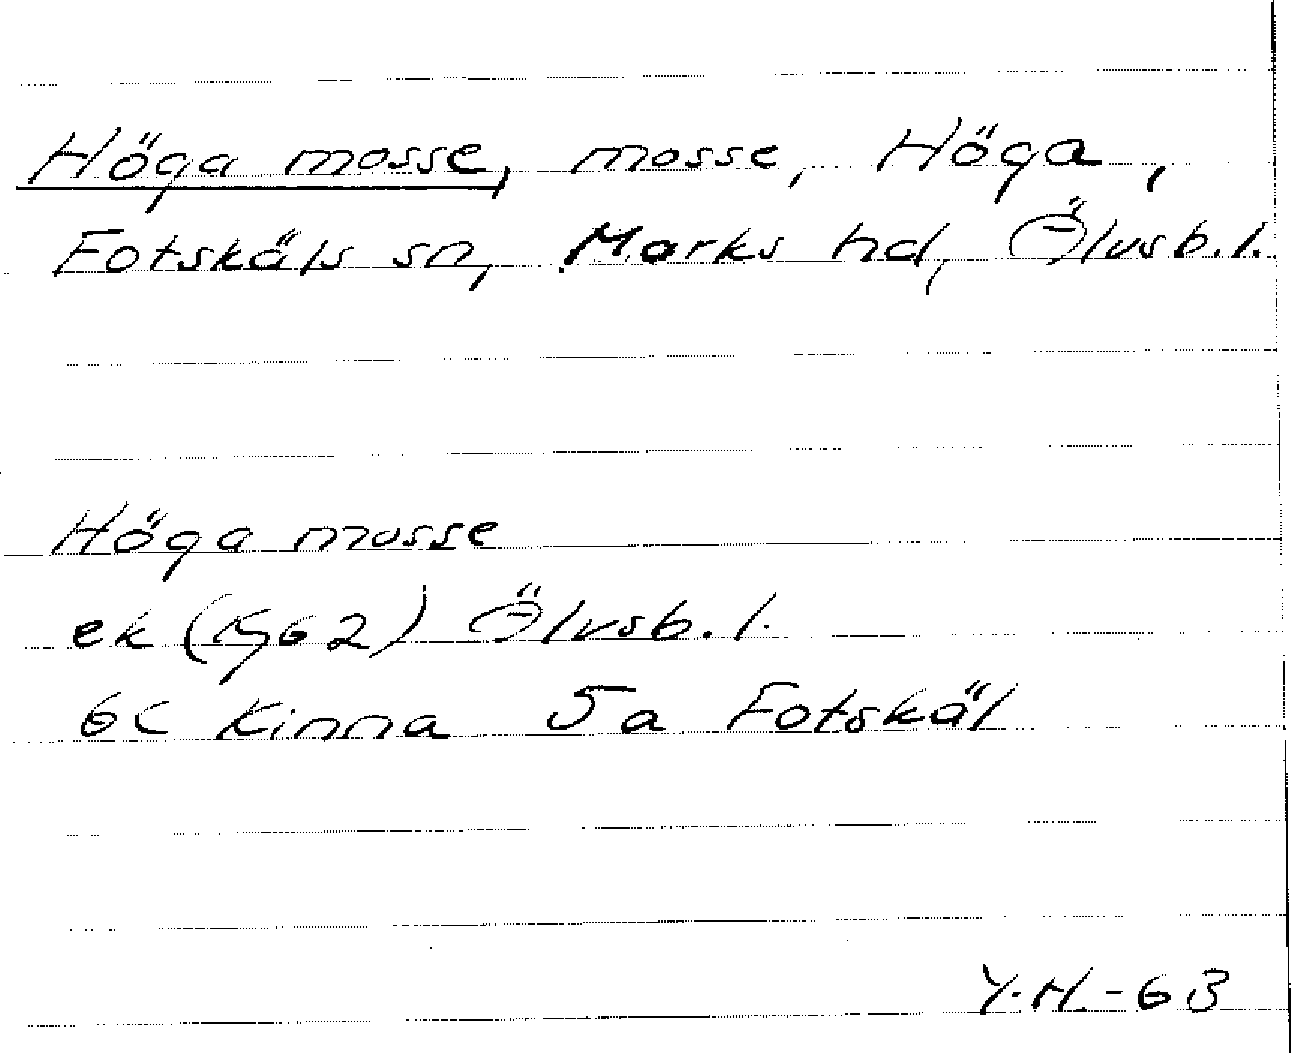 Höga mosse, mosse, Höga,
Fotskäls sn, Marks hd, Älvsb. l.
Höga mosse
ek (1962) Älvsb. l.
6c Kinna 5a Fotskäl
Y.H.-63